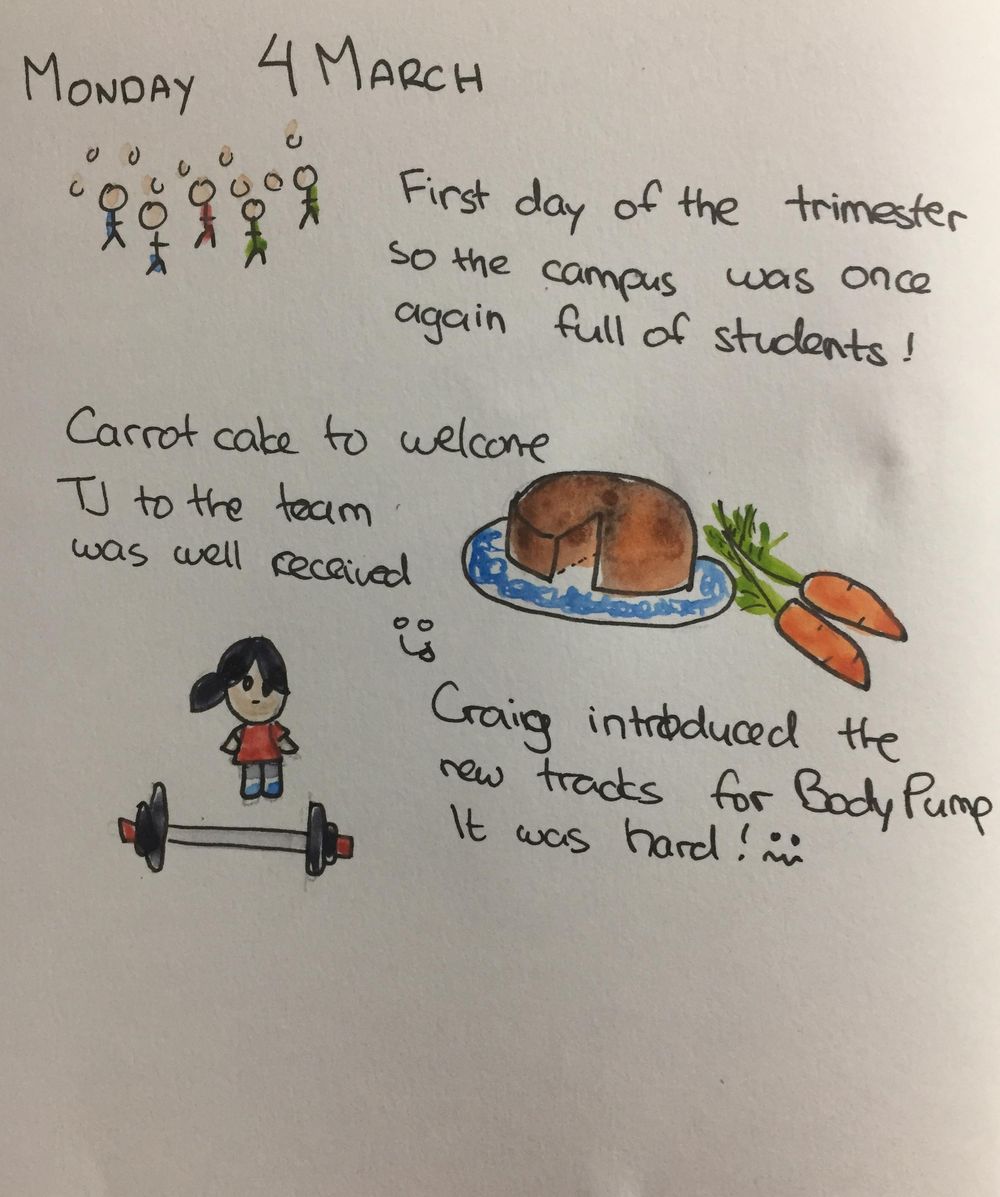 MONDAY 4 MARCH
First day of the trimester
so the campus was once
again full of students!
Carrot cake to welcome
TJ to the team
was well received
Craig introduced the
new tracks for Body Pump
It was hard!